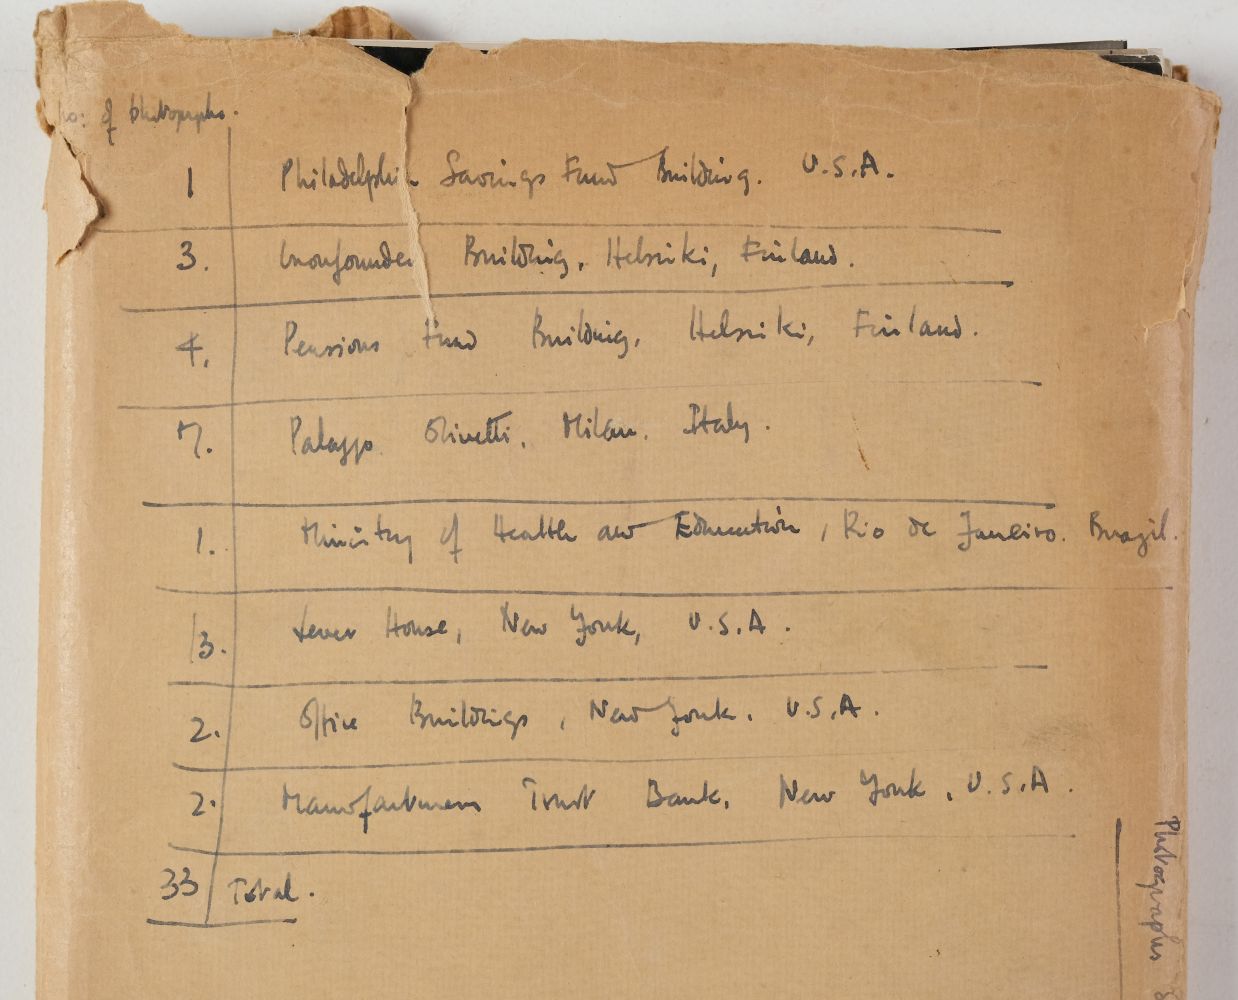 no: of photographs.
1 Philadelphia Savings Fund Building. U.S.A.
3. Ironfounder Building, Helsinki, Finland.
4. Pensions Fund Building, Helsinki, Finland.
7. Palazzo Olivetti, Milan. Italy.
1. Ministry of Health and Education, Rio de Janeiro. Brazil.
13. Lever House, New York, U.S.A.
2. Office Buildings, New York. U.S.A.
2. Manufacturers Trust Bank, New York, U.S.A.
33 Total.
Photographs